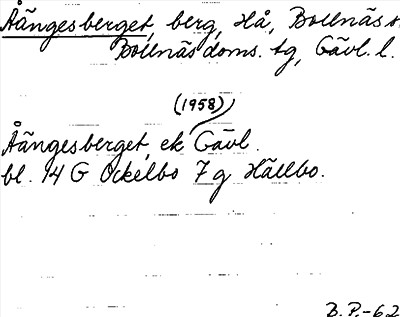 Åängesberget, berg, Hå, Bollnäs s.
Bollnäs doms. tg, Gävl. l.
(1958)
Åängesberget, ek Gävl.
bl. 14 G Ockelbo 7 g Hällbo.
B.P.-62